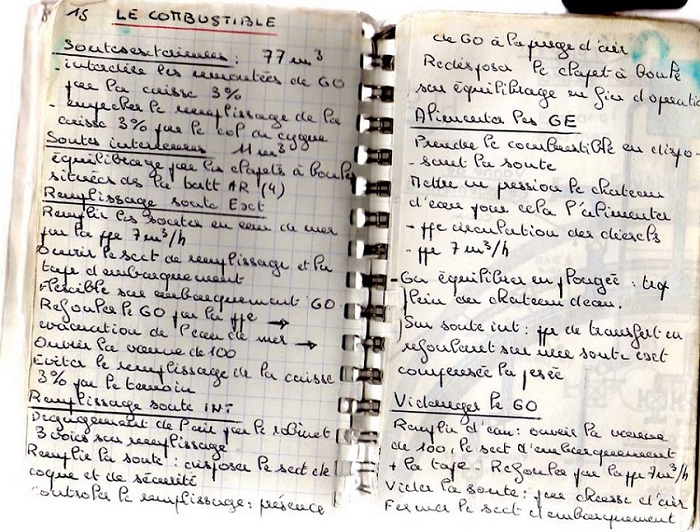 15 LE COMBUSTIBLE
Soutes extérieures : 77 m³
- interdire les remontées de GO
par la caisse 3%
- empecher le remplissage de la
caisse 3% par le col de cygne
Soutes interieures 11 m³
équilibrage par les clapets à boule
situées ds la batt AR (4)
Remplissage soute Ext
Remplir les soutes en eau de mer
par la ppe 7 m³/h
Ouvrir le sect de remplissage et la
tape d'embarquement
Flexible sur embarquement GO
Refouler le GO par la ppe →
évacuation de l'eau de mer →
Ouvrir la vanne de 100
Eviter le remplissage de la caisse
3% par le terrain
Remplissage soute INT
Dégagement de l'air par le robinet
3 voies sur remplissage
Remplir la soute : disposer le sect de
coque et de sécurité
controler le remplissage : présence
de GO à la purge d'air
Redisposer le clapet à boule
sur équilibrage en fin d'operation
Alimenter les GE
Prendre le combustible en dispo-
- sant la soute
Mettre en pression le chateau
d'eau pour cela l'alimenter
- ppe circulation des diesels
- ppe 7 m³/h
- Ga équilibrer en plongée : trop
plein du chateau d'eau.
- Sur soute int : ppe de transfert en
refoulant sur une soute ext
compensée la pesée
Vidanges le GO
Remplir d'eau : ouvrir la vanne
de 100, le sect d'embarquement
+ la tape : Refouler par la ppe 7 m³/h
Vider la soute : par chasse d'air
Fermer le sect d'embarquement